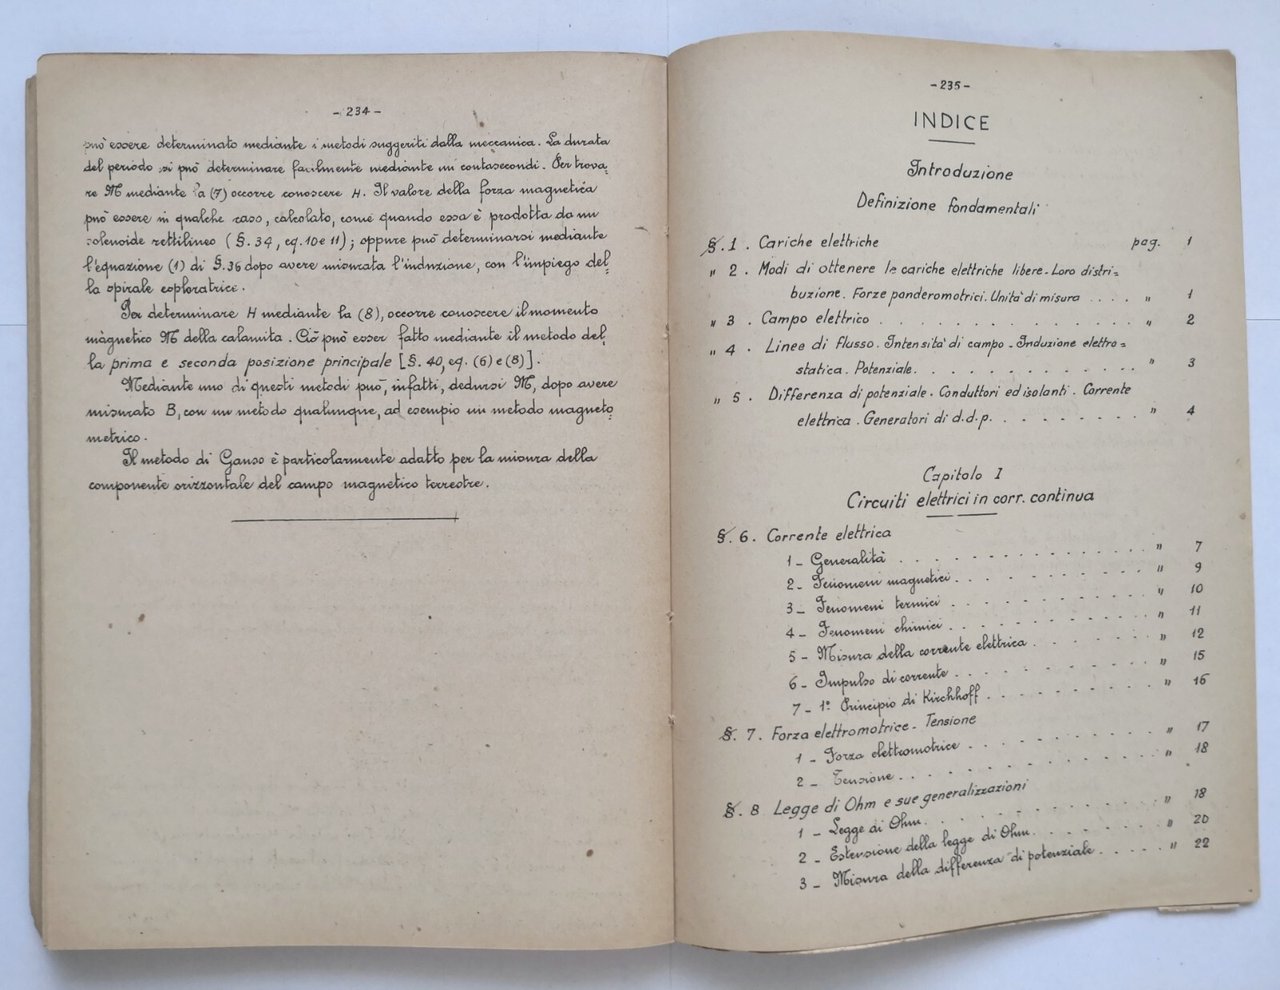 - 234 -
può essere determinato mediante i metodi suggeriti dalla meccanica. La durata
del periodo si può determinare facilmente mediante un contasecondi. Per trova-
re M mediante la (7) occorre conoscere H. Il valore della forza magnetica
può essere in qualche caso, calcolato, come quando essa è prodotta da un
solenoide rettilineo (§. 34, eq. 10 e 11); oppure può determinarsi mediante
l'equazione (1) di §. 36 dopo avere misurata l'induzione, con l'impiego del=
la spirale esploratrice.
Per determinare H mediante la (8), occorre conoscere il momento
màgnetico M della calamita. Ciò può esser fatto mediante il metodo del=
la prima e seconda posizione principale [§. 40, eq. (6) e (8)].
Mediante uno di questi metodi può, infatti, dedursi M, dopo avere
misurato B, con un metodo qualunque, ad esempio un metodo magneto=
metrico.
Il metodo di Gauss è particolarmente adatto per la misura della
componente orizzontale del campo magnetico terrestre.
- 235 -
INDICE
Introduzione
Definizione fondamentali
§. 1. Cariche elettriche pag. 1
" 2. Modi di ottenere le cariche elettriche libere - Loro distri=
buzione. Forze ponderomotrici. Unità di misura .... " 1
" 3. Campo elettrico .............. " 2
" 4. Linee di flusso. Intensità di campo - Induzione elettro=
statica. Potenziale. ............ " 3
" 5. Differenza di potenziale. Conduttori ed isolanti. Corrente
elettrica. Generatori di d.d.p. ........ " 4
Capitolo I
Circuiti elettrici in corr. continua
§. 6. Corrente elettrica
1 - Generalità ............. " 7
2 - Fenomeni magnetici .......... " 9
3 - Fenomeni termici ........... " 10
4 - Fenomeni chimici ........... " 11
5 - Misura della corrente elettrica ....... " 12
6 - Impulso di corrente .......... " 15
7 - 1° Principio di Kirchhoff ......... " 16
§. 7. Forza elettromotrice - Tensione
1 - Forza elettromotrice .......... " 17
2 - Tensione ............. " 18
§. 8 Legge di Ohm e sue generalizzazioni
1 - Legge di Ohm. ........... " 18
2 - Estensione della legge di Ohm. ...... " 20
3 - Misura della differenza di potenziale ..... " 22